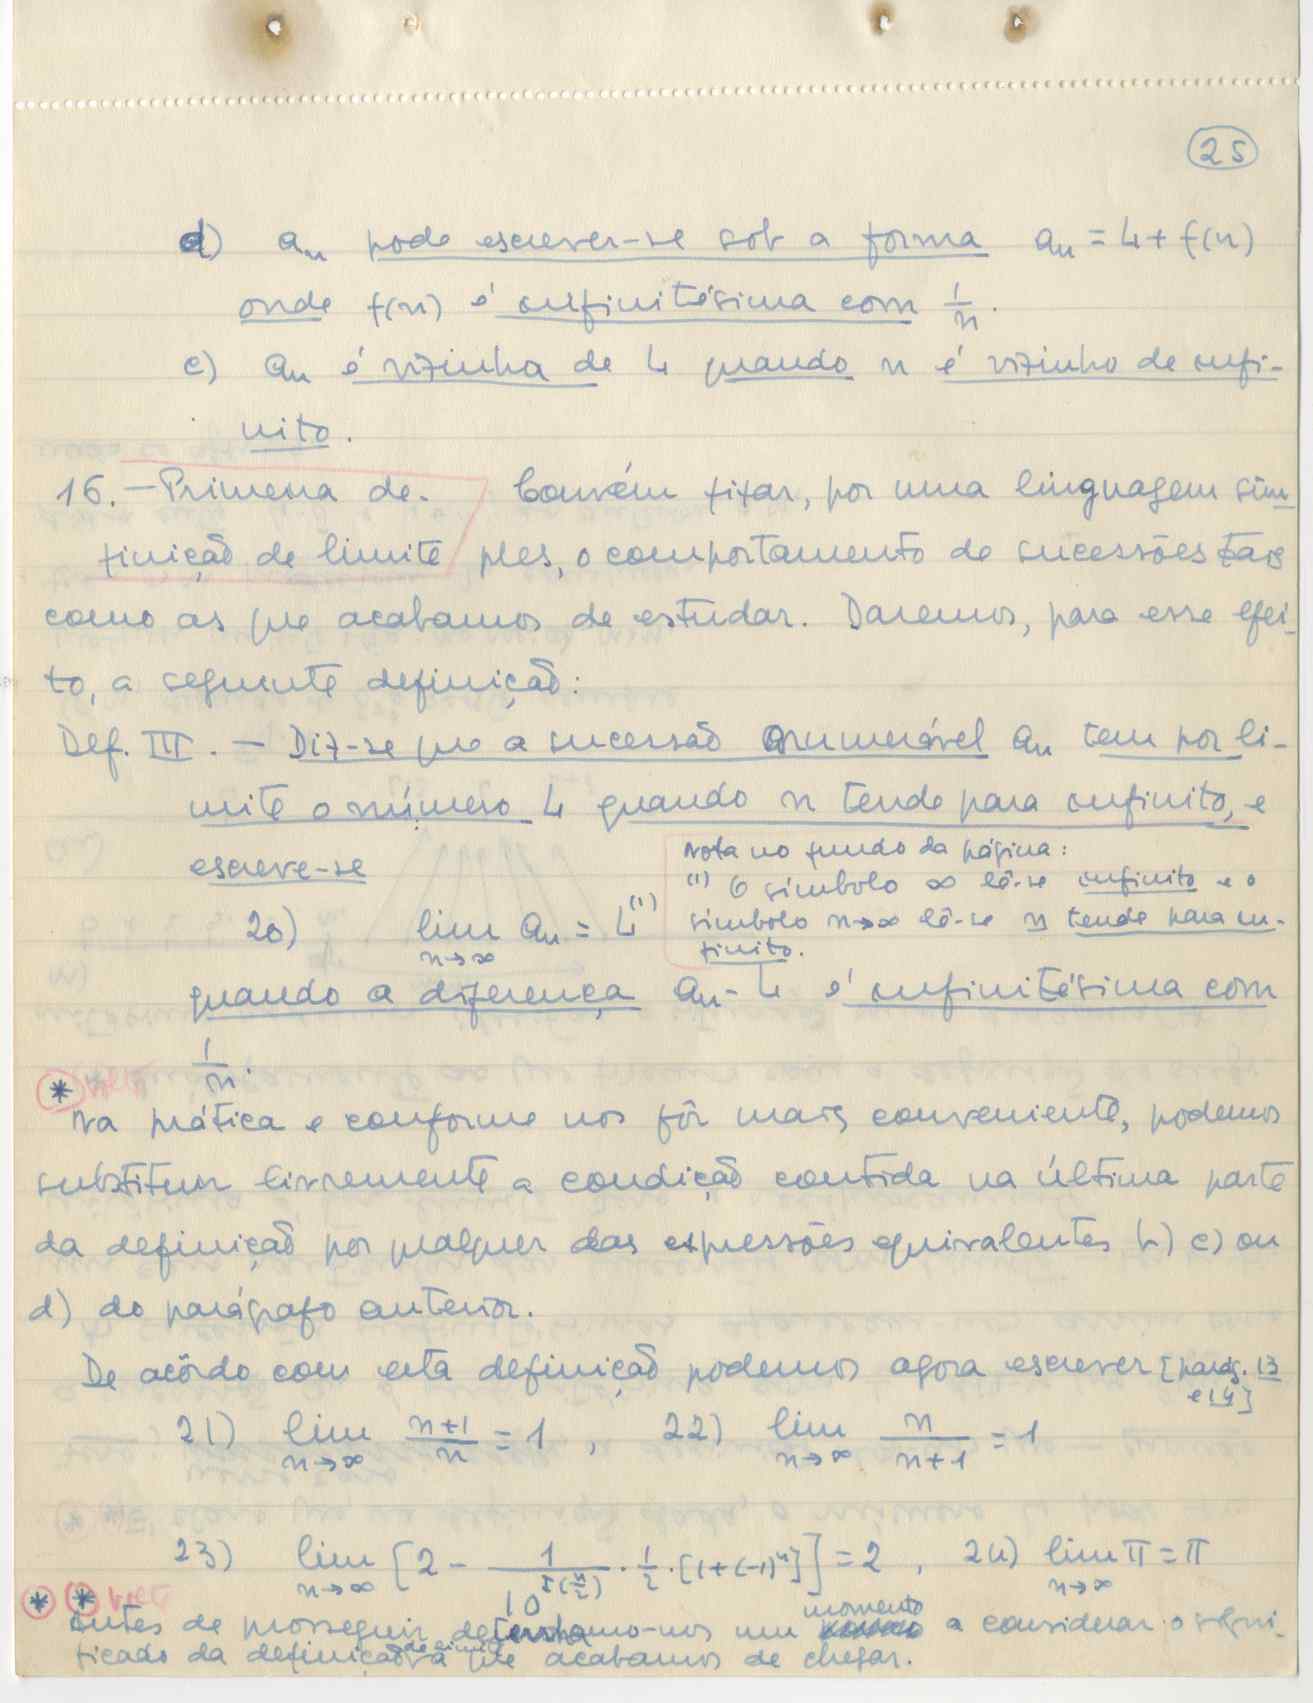 25
d) an pode escrever-se sob a forma an = L + f(n)
onde f(n) é infinitésima com 1/n.
e) an é vizinha de L quando n é vizinho de infi-
nito.
16. — Primeira de- Convém fixar, por uma linguagem sim-
finição de limite ples, o comportamento de sucessões tais
como as que acabamos de estudar. Daremos, para esse efei-
to, a seguinte definição:
Def. III. — Diz-se que a sucessão numerável an tem por li-
mite o número L quando n tende para infinito, e
escreve-se
Nota no fundo da página:
(1) O símbolo ∞ lê-se infinito e o
símbolo n→∞ lê-se n tende para in-
finito.
20) lim n→∞ an = L (1)
quando a diferença an - L é infinitésima com
1/n.
* Na prática e conforme nos fôr mais conveniente, podemos
substituir livremente a condição contida na última parte
da definição por qualquer das expressões equivalentes b) c) ou
d) do parágrafo anterior.
De acôrdo com esta definição podemos agora escrever [parág. 13
e 14]
21) lim n→∞ n+1/n = 1 , 22) lim n→∞ n/n+1 = 1
23) lim n→∞ [2 - 1/10^I(n/2) · 1/2 · [1+(-1)^n]] = 2 , 24) lim n→∞ π = π
* * Antes de prosseguir detenhamo-nos um momento a considerar o signi-
ficado da definição de limite a que acabamos de chegar.